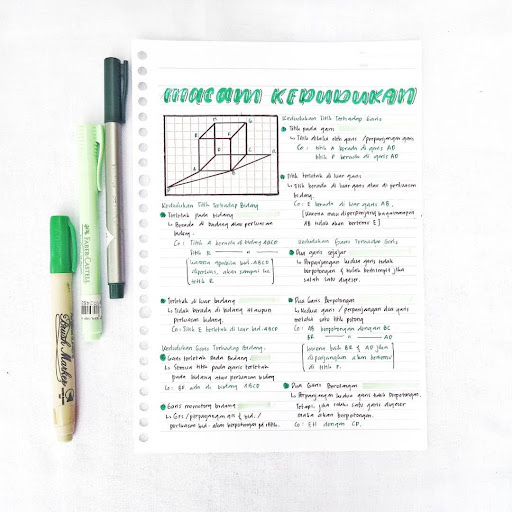 MACAM KEDUDUKAN
Kedudukan Titik Terhadap Bidang
Terletak pada bidang
↳ Berada di bidang atau perluasan
bidang.
Co: Titik A berada di bidang ABCD
Titik R
[karena apabila bid. ABCD
diperluas, akan sampai ke
titik R]
Terletak di luar bidang
↳ Tidak berada di bidang ataupun
perluasan bidang.
Co: Titik E terletak di luar bid. ABCD
Kedudukan Garis Terhadap Bidang
Garis terletak Pada Bidang
↳ Semua titik pada garis terletak
pada bidang atau perluasan bidang
Co: BR ada di bidang ABCD
Garis memotong bidang
↳ Grs/perpanjangan grs & bid./
perluasan bid. akan berpotongan pd 1 titik.
Kedudukan Titik Terhadap Garis
Titik pada garis
↳ Titik dilalui oleh garis/perpanjangan garis
Co: Titik A berada di garis AD
titik P berada di garis AD
Titik terletak di luar garis
↳ Titik berada di luar garis atau di perluasan
bidang.
Co: E berada di luar garis AB.
[karena mau diperpanjang bagaimanapun
AB tidak akan bertemu E]
Kedudukan Garis Terhadap Garis
Dua garis sejajar
↳ Perpanjangan kedua garis tidak
berpotongan & tidak berhimpit jika
salah satu digeser.
Dua Garis Berpotongan
↳ Kedua garis / perpanjangan dua garis
melalui satu titik potong
Co: AB berpotongan dengan BC
BR " AD
[karena baik BR & AD jika
diperpanjang akan bertemu
di titik P.]
Dua Garis Bersilangan
↳ Perpanjangan kedua garis tidak berpotongan.
Tetapi jika salah satu garis digeser
maka akan berpotongan.
Co: EH dengan CD.
FABER-CASTELL
Brush Marker